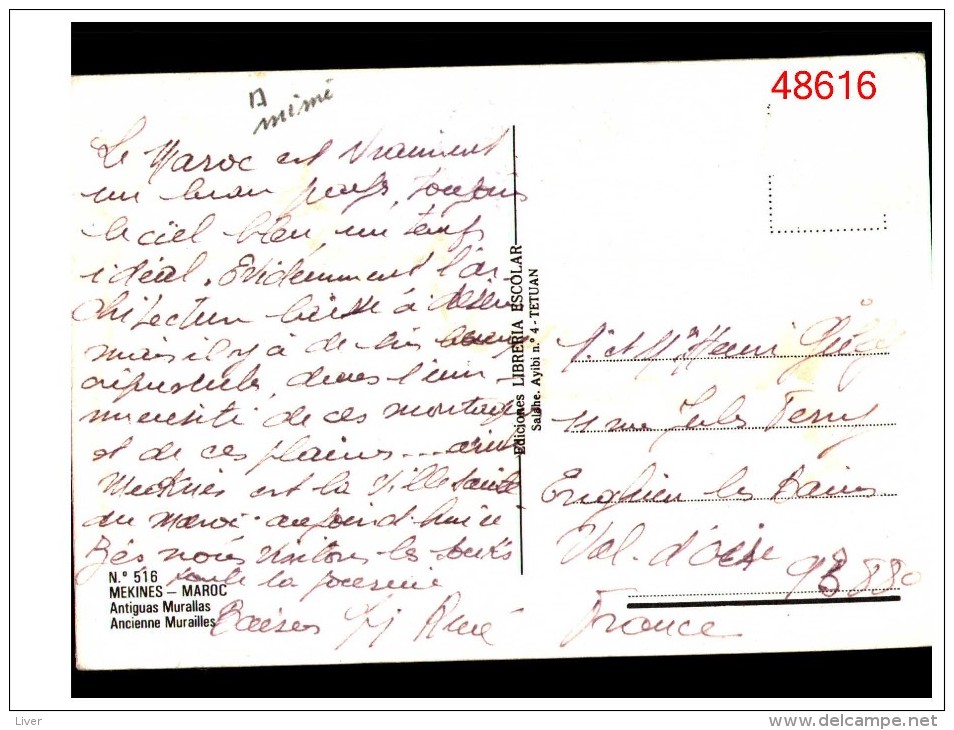 48616
A
mimi
Le Maroc est vraiment
un beau pays, toujours
le ciel bleu, un temps
idéal. Evidemment l'ar-
chitecture laisse à désirer
mais il y a de très beaux
dans l'im-
mensité de ces montagnes
et de ces plaines...
Meknes est la Ville Sainte
du Maroc. aujourd'hui
Fès nous visitons les souks
toute la journée
Baisers René
N.° 516
MEKINES – MAROC
Antiguas Murallas
Ancienne Murailles
Ediciones LIBRERIA ESCOLAR
Salahe. Ayibi n.° 4 - TETUAN
M. et Me Henri
11 rue Jules Ferry
Enghien les Bains
Val-d'Oise
93880
France
Liver
delcampe.net